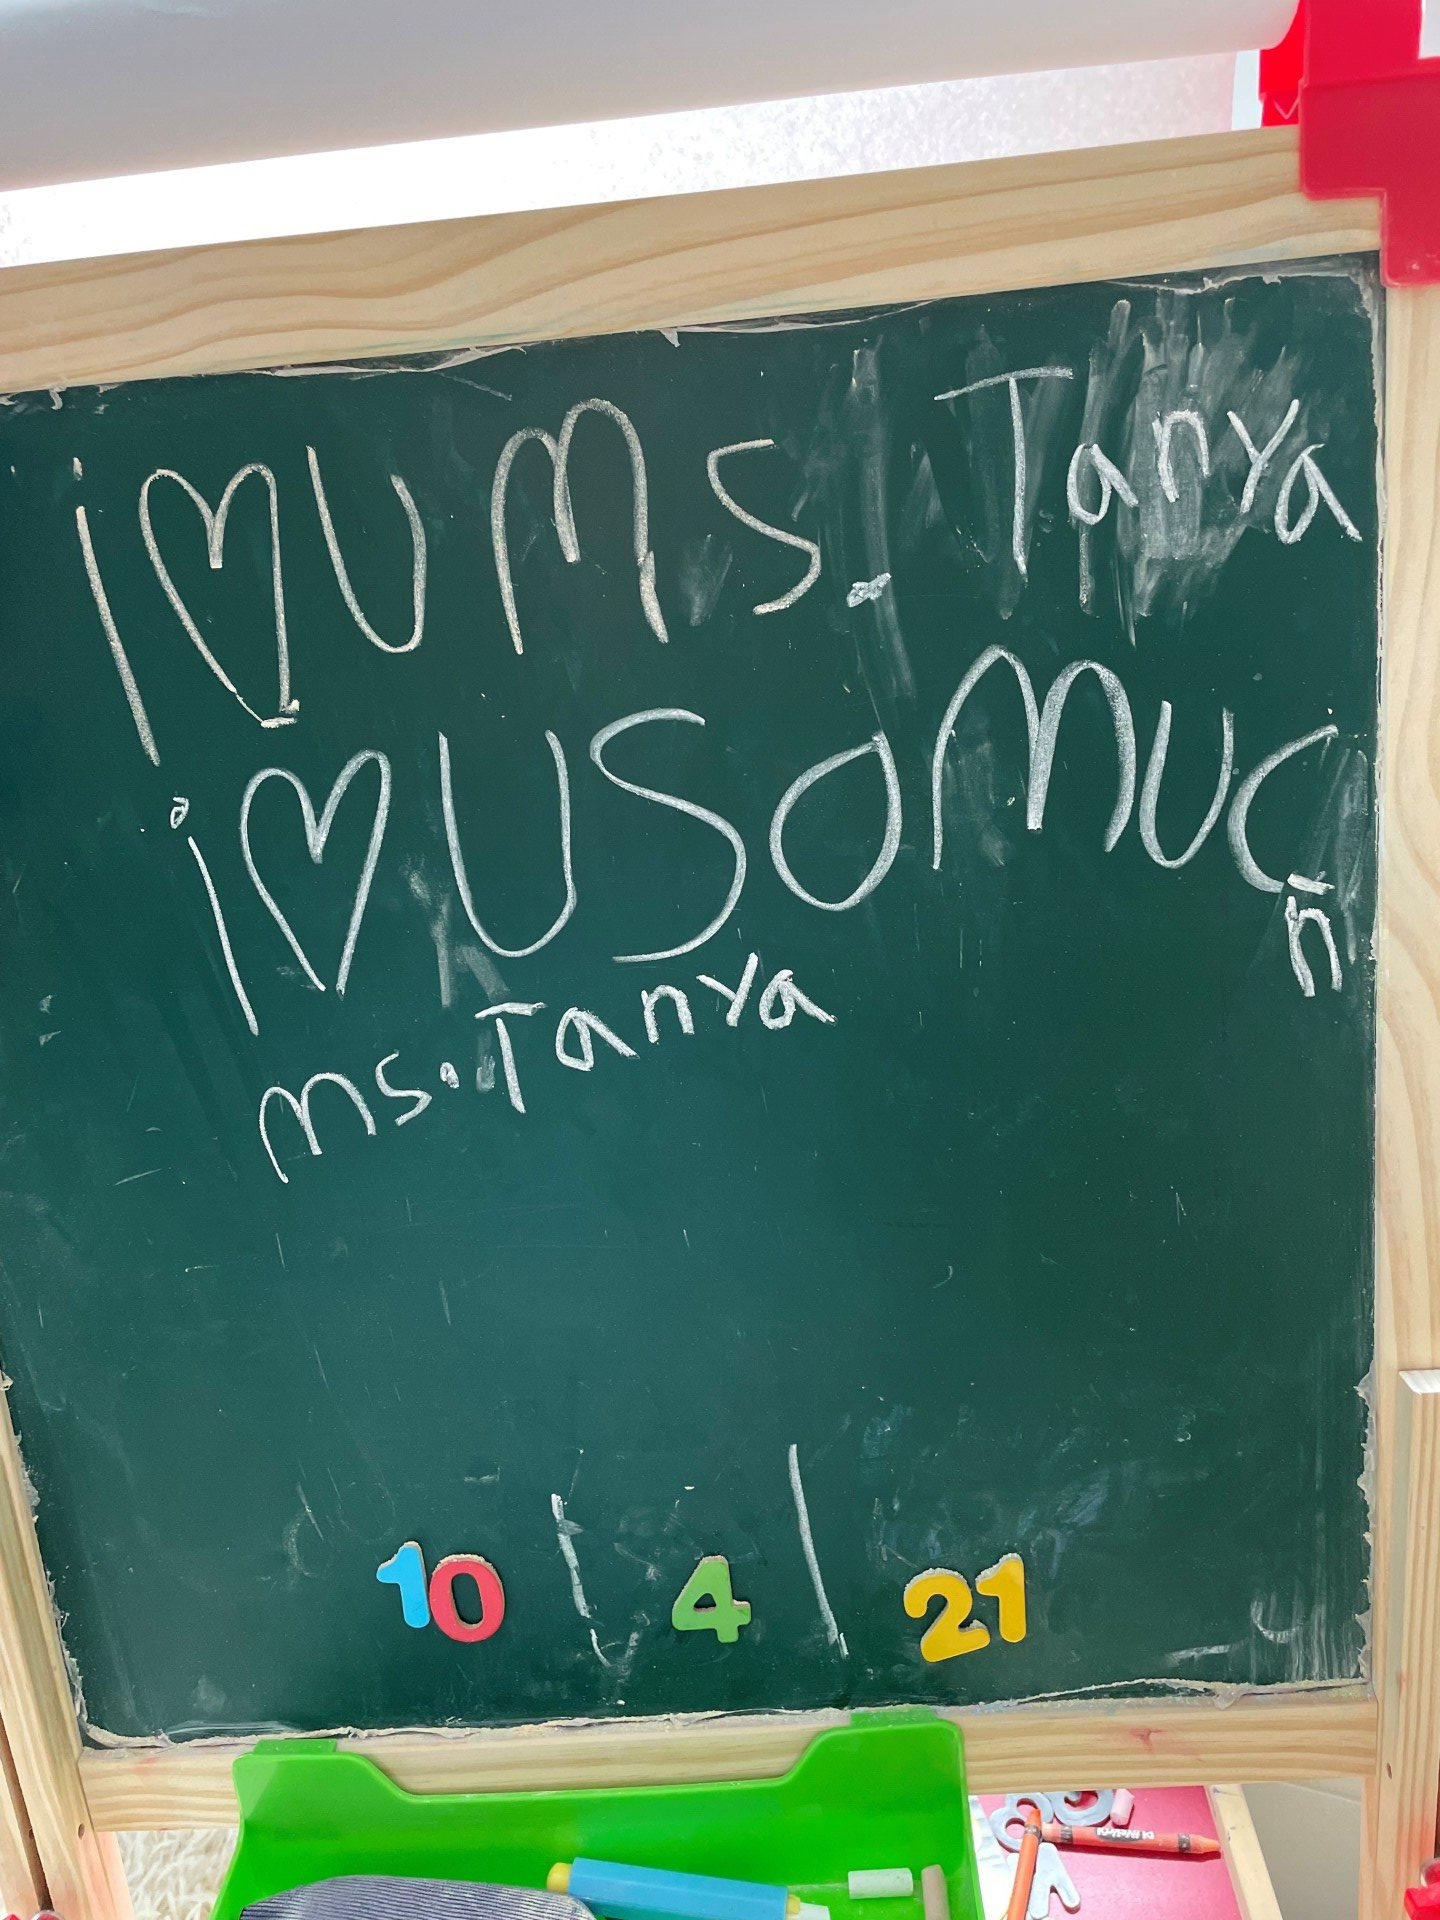 i ♡ U Ms. Tanya
i ♡ U SO MUCh
Ms. Tanya
10 | 4 | 21